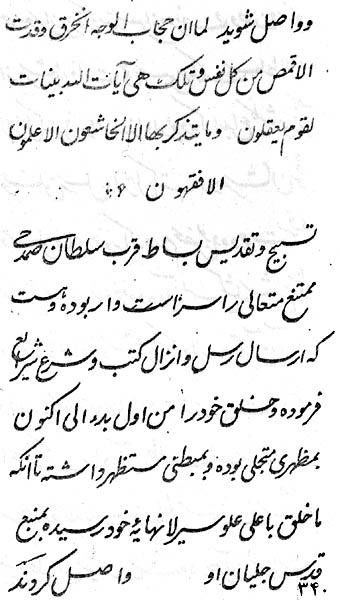 و واصل شوید لما ان حجاب الوجه انخرق و قدت
الاقمص من کل نفس و تلک هی آیات الله بینات
لقوم یعقلون و ما یتذکر بها الا الخاشعون الاعلمون
الافقهون
تسبیح و تقدیس بساط قرب سلطان صمدی
ممتنع متعالی را سزاست و ار بوده و هست
که ارسال رسل و انزال کتب و شرع شرایع
فرموده و خلق خود را من اول بدء الی اکنون
بمظهری متجلی بوده و بمبطنی مستظهر داشته تا آنکه
ما خلق باعلی علو سیر لا نهایهٔ خود رسیده بمنبع
قدس جلیان او واصل کردند
۳۴۰